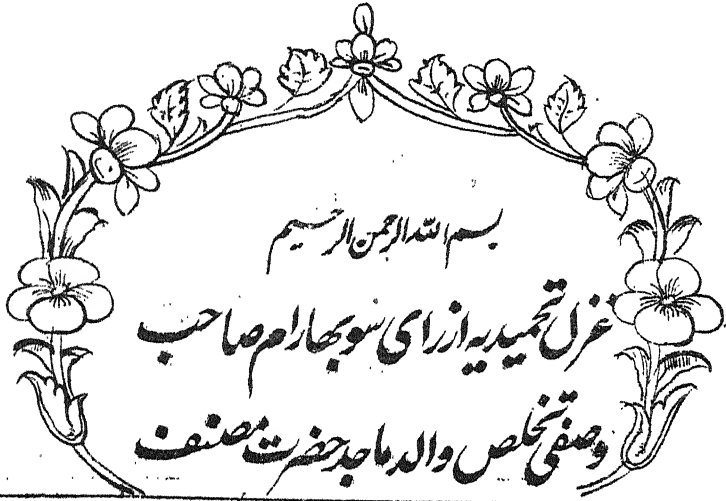 بسم الله الرحمن الرحیم
غزل تحمیدیه از رای سوبهارام صاحب
وصفی تخلص والد ماجد حضرت مصنف